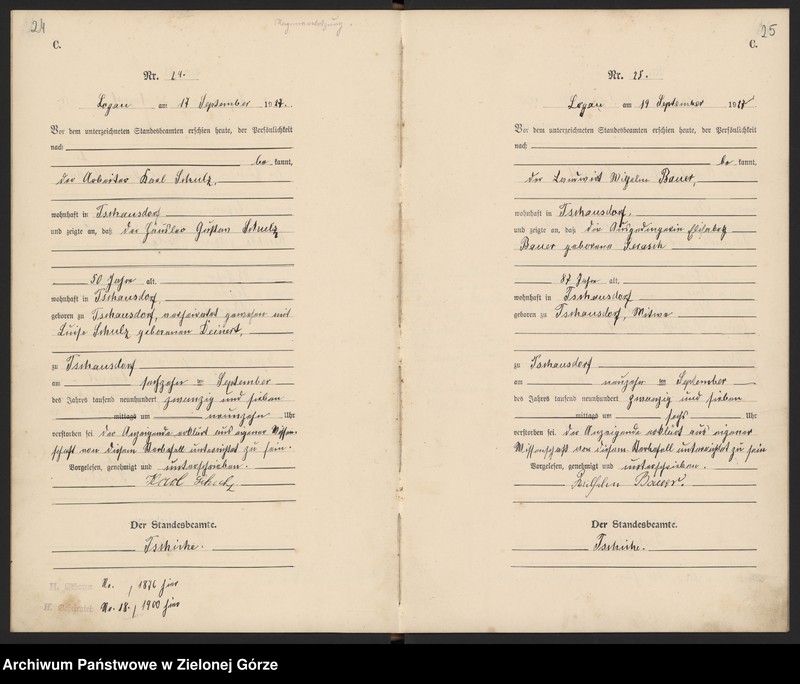 24
C.
Nr. 24.
Logau am 17 September 1927.
Vor dem unterzeichneten Standesbeamten erschien heute, der Persönlichkeit
nach
be kannt,
der Arbeiter Karl Schulz,
wohnhaft in Tschausdorf
und zeigte an, daß der Häusler Gustav Schulz
50 Jahre alt,
wohnhaft in Tschausdorf
geboren zu Tschausdorf, verheiratet gewesen mit
Luise Schulz geborenen Deinert,
zu Tschausdorf
am sechzehn ten September
des Jahres tausend neunhundert zwanzig und sieben
mittags um neunzehn Uhr
verstorben sei. Der Anzeigende erklärt aus eigener Wissen-
schaft von diesem Sterbefall unterrichtet zu sein.
Vorgelesen, genehmigt und unterschrieben.
Karl Schulz
Der Standesbeamte.
Tschirke.
No. , 1876 hier
No. 18. , 1900 hier
25
C.
Nr. 25.
Logau am 19 September 1927
Vor dem unterzeichneten Standesbeamten erschien heute, der Persönlichkeit
nach
be kannt,
der Landwirt Wilhelm Bauer,
wohnhaft in Tschausdorf,
und zeigte an, daß die Auszüglerin Elisabeth
Bauer geborene
87 Jahre alt,
wohnhaft in Tschausdorf
geboren zu Tschausdorf, Witwe
zu Tschausdorf
am neunzehn ten September
des Jahres tausend neunhundert zwanzig und sieben
mittags um sechs Uhr
verstorben sei. Der Anzeigende erklärt aus eigener
Wissenschaft von diesem Sterbefall unterrichtet zu sein
Vorgelesen, genehmigt und unterschrieben.
Wilhelm Bauer.
Der Standesbeamte.
Tschirke.
Archiwum Państwowe w Zielonej Górze